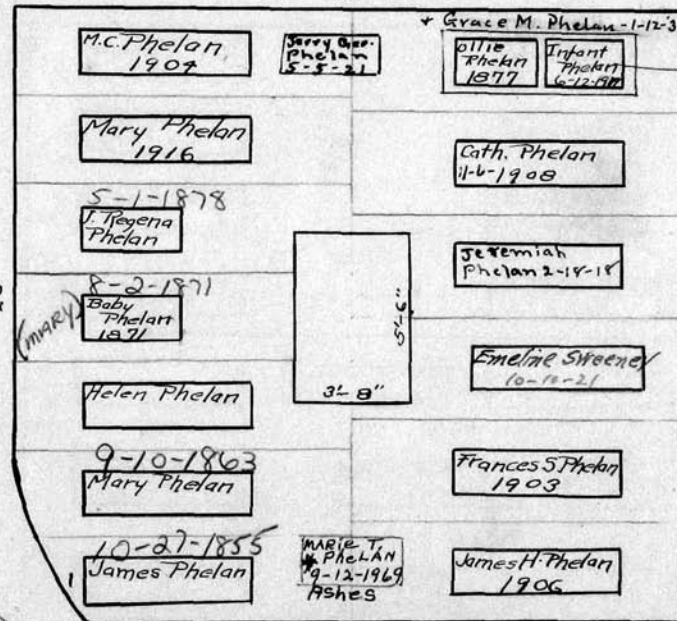 * Grace M. Phelan - 1-12-3
M.C. Phelan
1904
Jerry Geo.
Phelan
5-5-21
Ollie
Phelan
1877
Infant
Phelan
Mary Phelan
1916
Cath. Phelan
11-6-1908
5-1-1878
J. Regena
Phelan
Jeremiah
Phelan 2-18-18
8-2-1871
(MARY)
Baby
Phelan
1871
5'-6"
3'-8"
Emeline Sweeney
10-10-21
Helen Phelan
9-10-1863
Mary Phelan
Frances S Phelan
1903
10-27-1855
James Phelan
1
MARIE T.
* PHELAN
9-12-1969
Ashes
James H. Phelan
1906